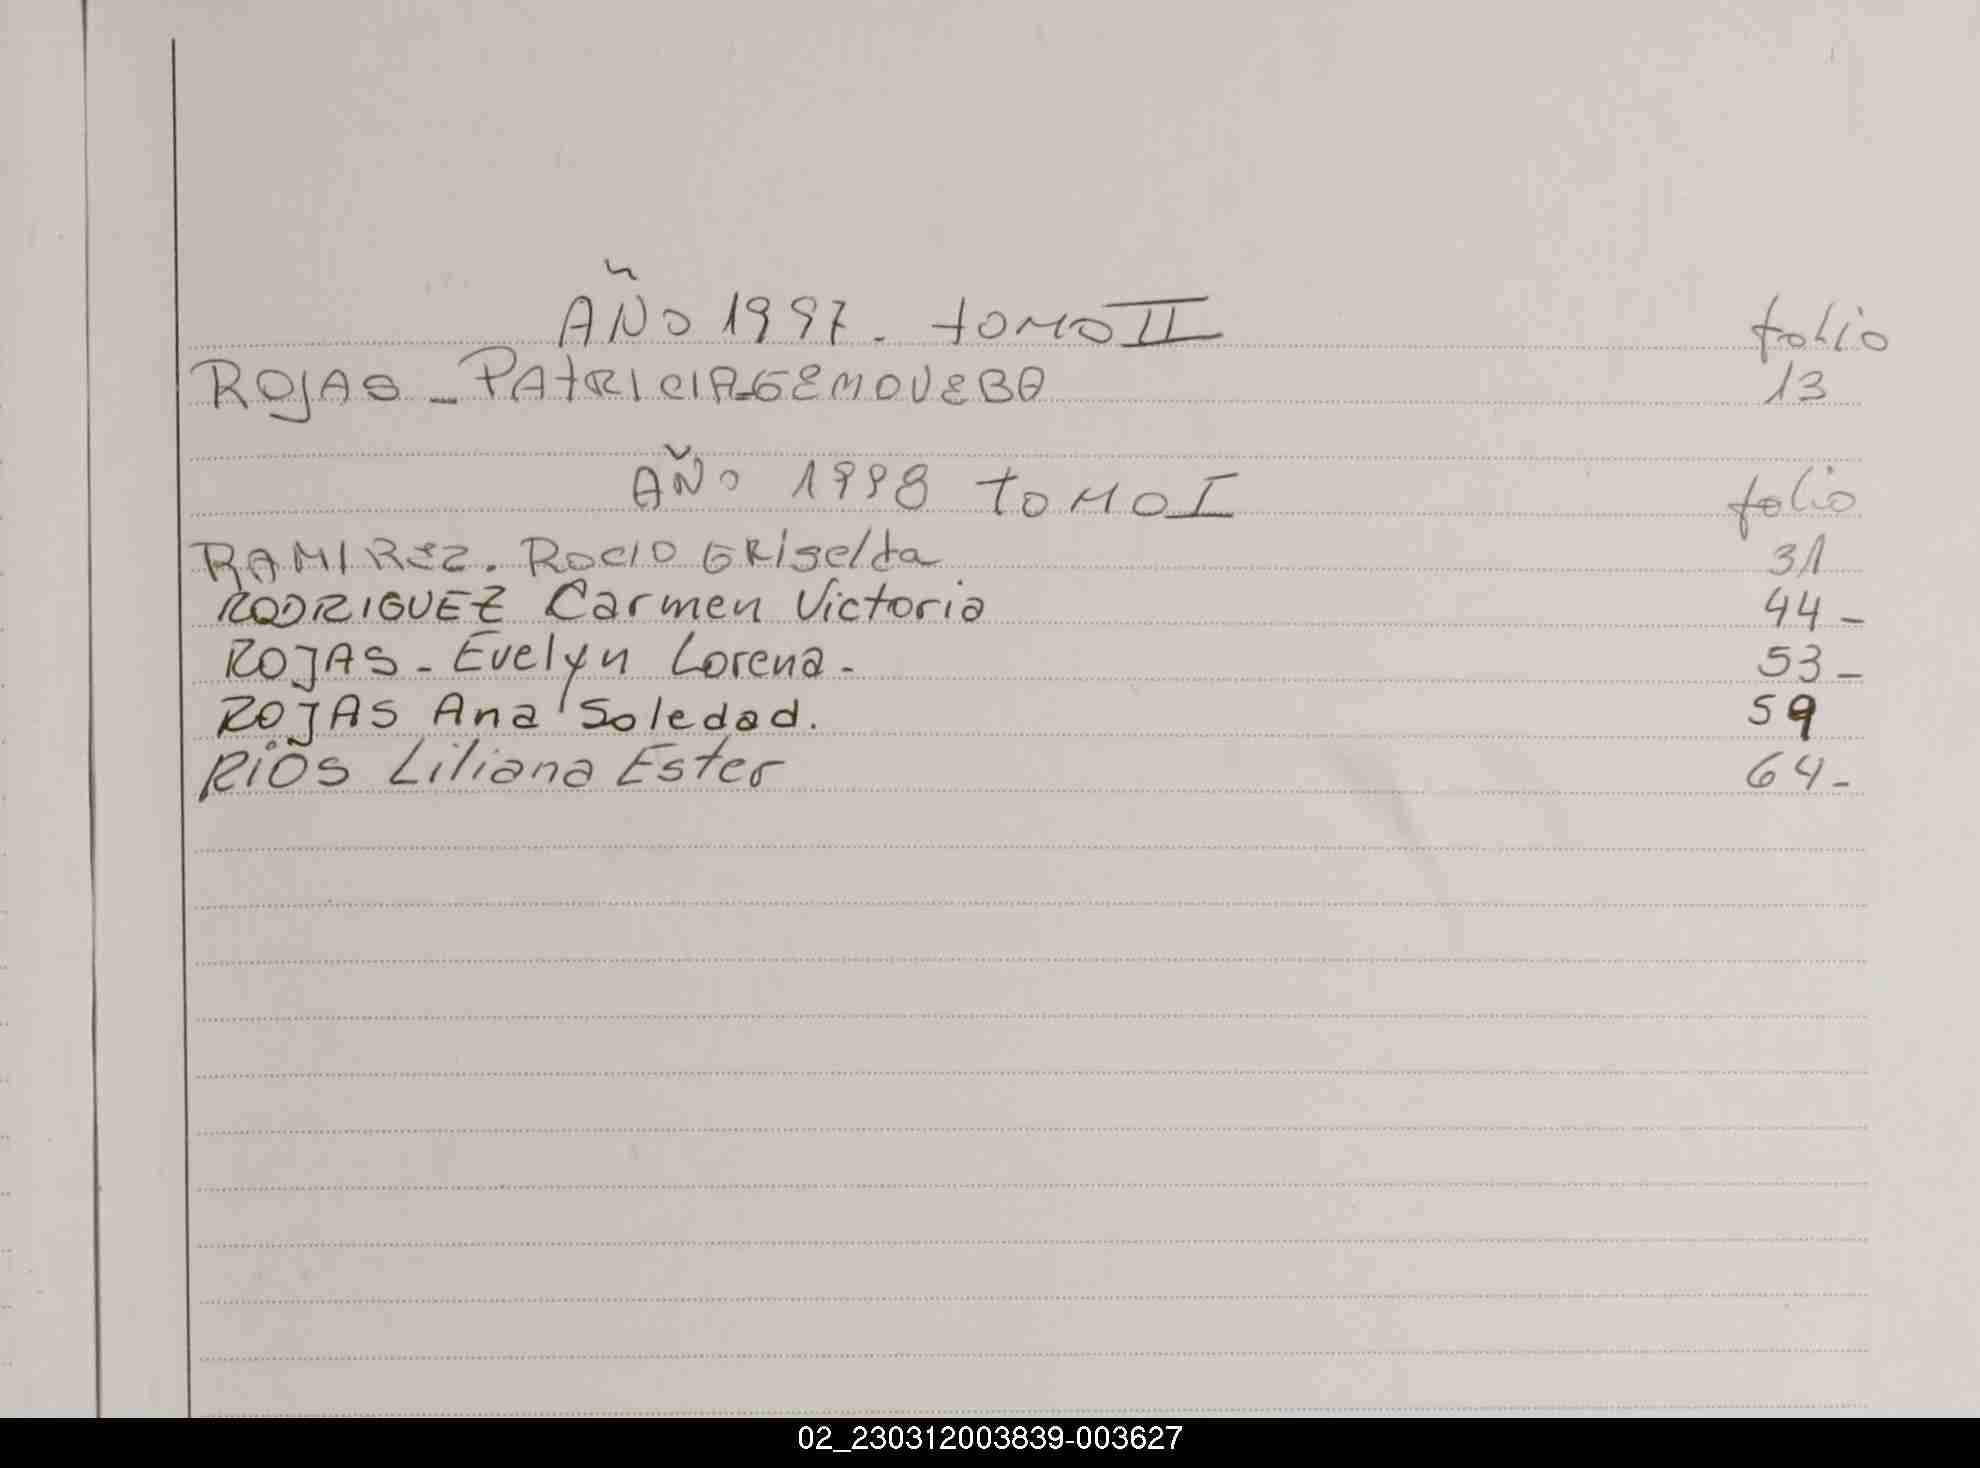 AÑO 1997. tomo II folio
ROJAS - PATRICIA-GEMOVEBA 13
AÑO 1998 TOMO I folio
RAMIREZ. ROCIO GRIselda 31
RODRIGUEZ Carmen Victoria 44-
ROJAS - Evelyn Lorena - 53-
ROJAS Ana Soledad. 59
RiOS Liliana Ester 64-
02_230312003839-003627